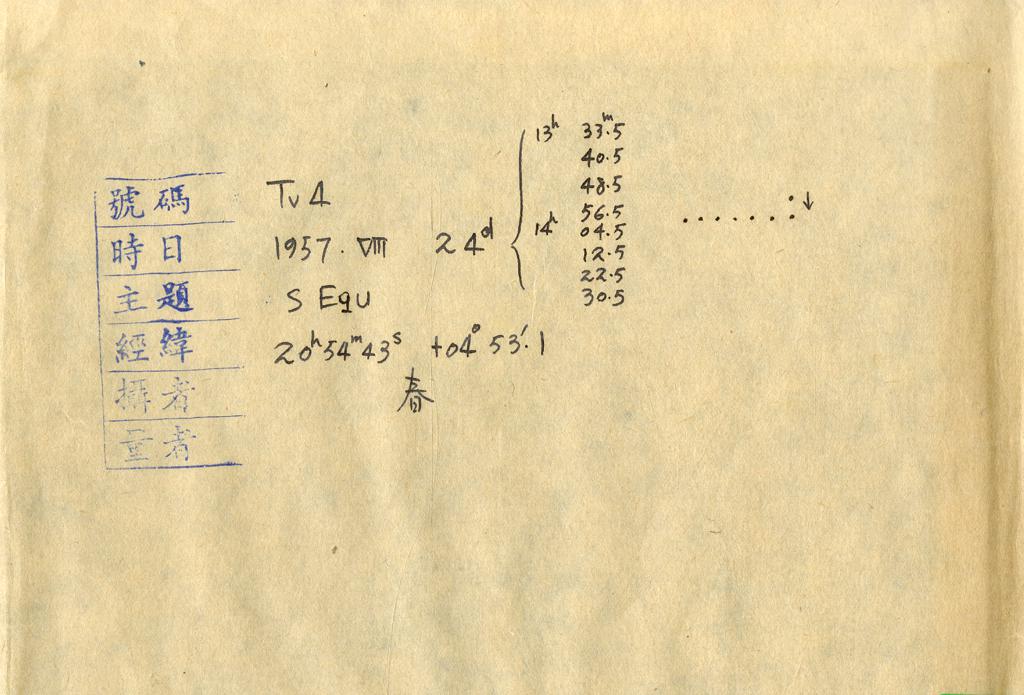 13ʰ 33ᵐ.5
40.5
48.5
號碼 Tv 4 56.5
14ʰ 04.5
時日 1957. VIII 24ᵈ 12.5
22.5
主題 S Equ 30.5
經緯 20ʰ54ᵐ43ˢ +04° 53′.1
攝者 春
量者